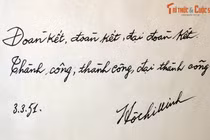 TRI THỨC & CUỘC SỐNG
Đoàn kết, đoàn kết, đại đoàn kết.
Thành công, thành công, đại thành công
3.3.51.
Hồ Chí Minh